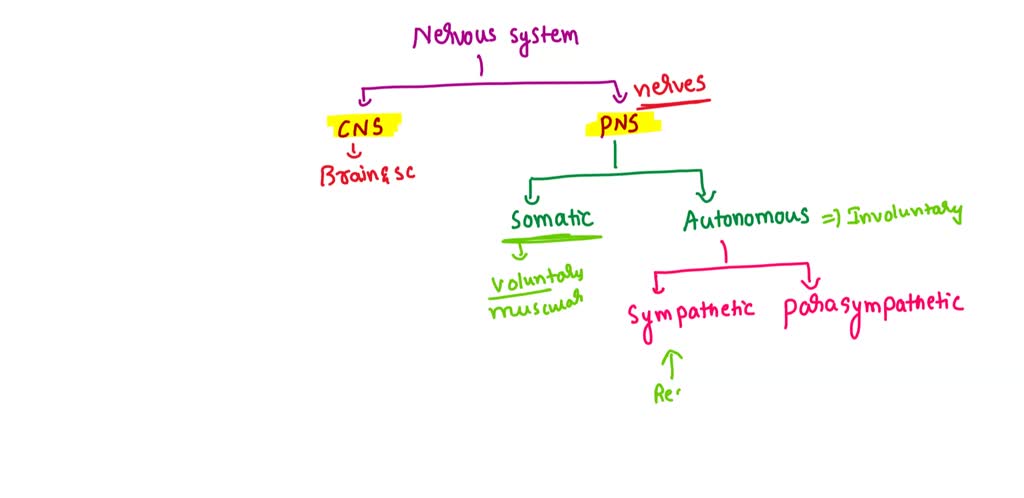 Nervous system
nerves
CNS
PNS
Brain & SC
Somatic
Autonomous => Involuntary
Voluntary
muscular
Sympathetic
parasympathetic
Re.